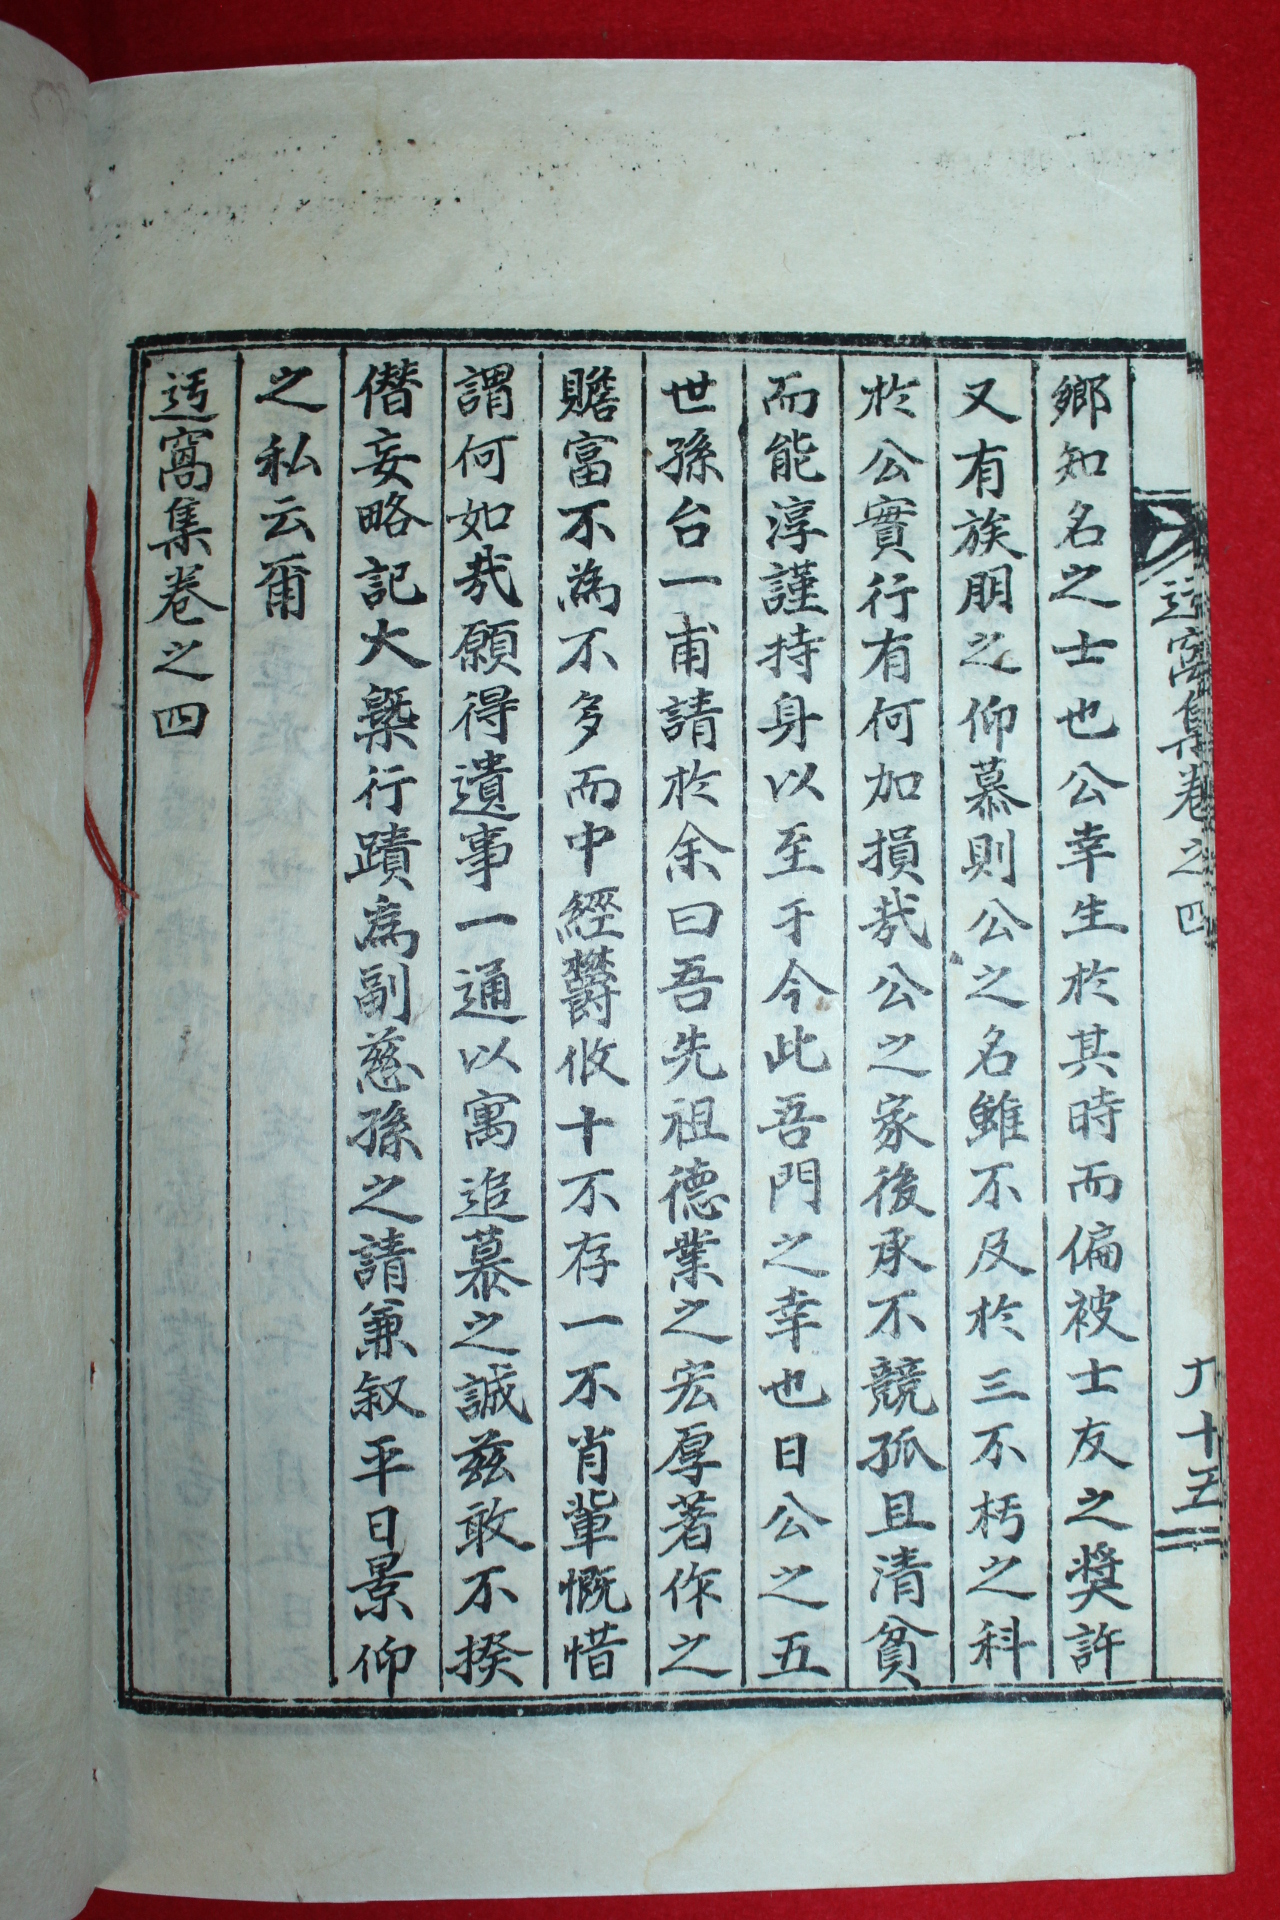 迃窩集卷之四
九十五
鄉知名之士也公幸生於其時而偏被士友之奬許
又有族朋之仰慕則公之名雖不及於三不朽之科
於公實行有何加損㢤公之家後承不競孤且清貧
而能淳謹持身以至于今此吾門之幸也日公之五
世孫台一甫請於余曰吾先祖德業之宏厚著作之
贍富不為不多而中經欝攸十不存一不肖輩慨惜
謂何如㢤願得遺事一通以寓追慕之誠玆敢不揆
僭妄略記大槩行蹟為副慈孫之請兼叙平日景仰
之私云爾
迃窩集卷之四